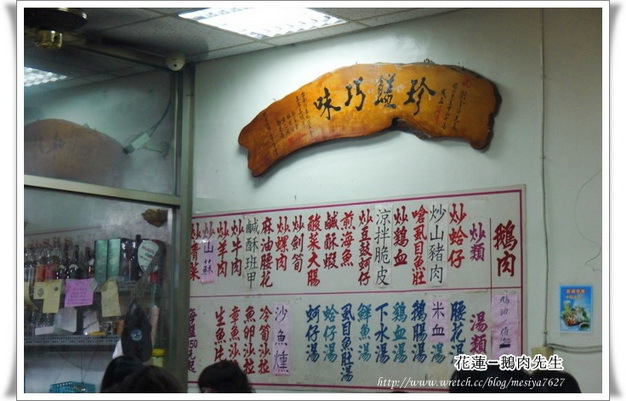 珍饈巧味
鵝肉
炒類
炒蛤仔
炒山豬肉
嗆虱目魚肚
炒鵝血
涼拌脆皮
炒豆豉蚵仔
煎海魚
鹹酥蝦
酸菜大腸
炒劍筍
炒螺肉
麻油腰花
鹹酥班甲
炒牛肉
炒羊肉
炒山蘇
炒青菜
湯類
腰花湯
米血
鵝腸湯
鵝血湯
下水湯
鮮魚湯
虱目魚肚湯
蛤仔湯
蚵仔湯
沙魚燻
冷筍沙拉
魚卵沙拉
章魚沙拉
生魚片
花蓮–鵝肉先生
http://www.wretch.cc/blog/mesiya7627